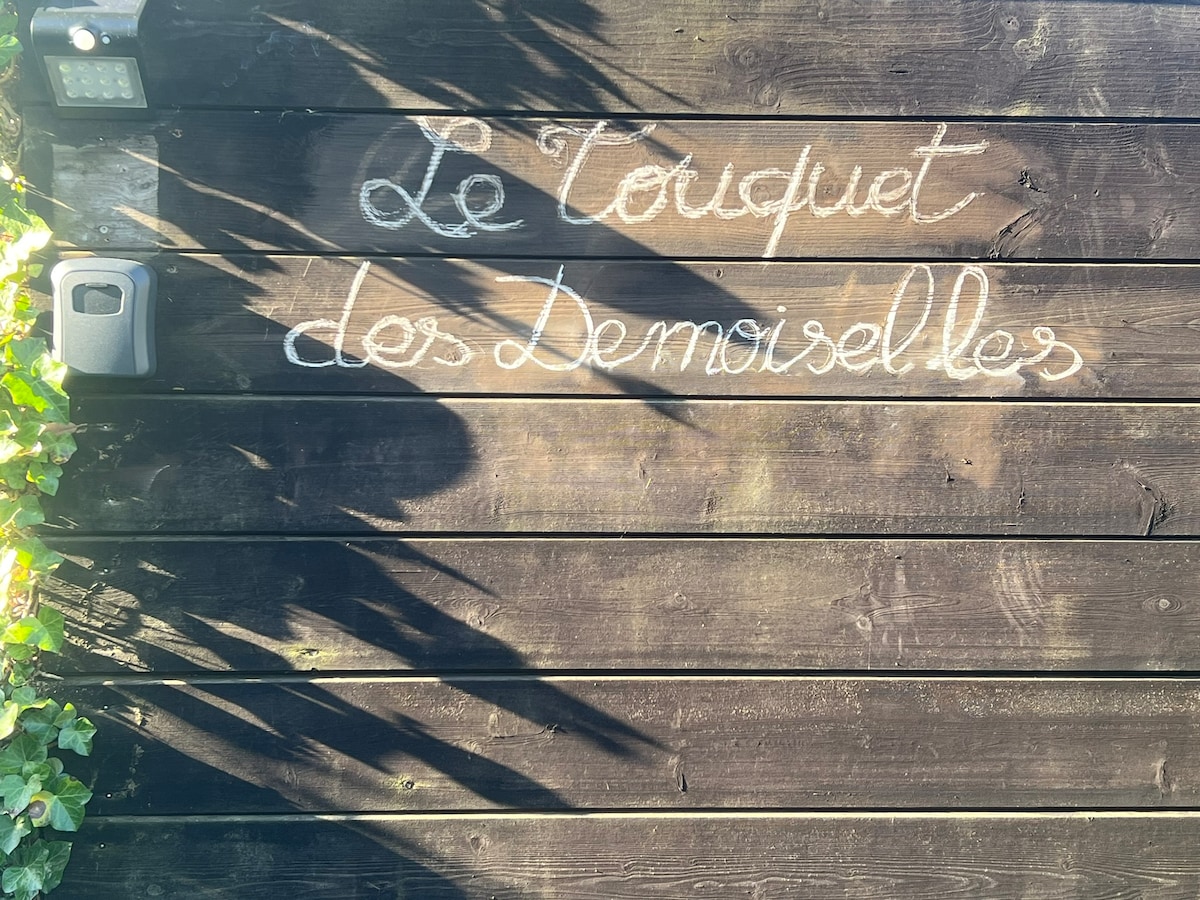 Le Touquet
des Demoiselles